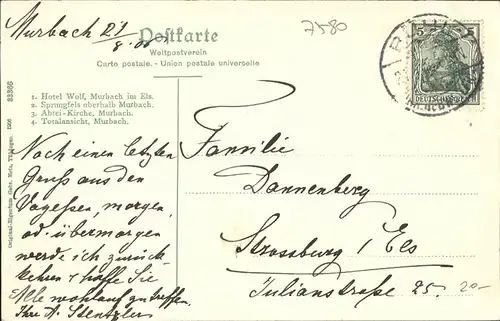 Murbach 21/8.06
7580
Postkarte
Weltpostverein
Carte postale. - Union postale universelle
5 5
DEUTSCHES REICH
1. Hotel Wolf, Murbach im Els.
2. Sprungfels oberhalb Murbach.
3. Abtei-Kirche, Murbach.
4. Totalansicht, Murbach.
83866
Original-Eigentum Gebr. Metz, Tübingen. 1906
Noch einen letzten
Gruss aus den
Vogesen, morgen
od. übermorgen
werde ich zurück-
kehren & hoffe Sie
Alle wohlauf zu treffen.
Ihre A. Stentzler
Familie
Dannenberg
Strassburg i/Els
Julianstraße 25.
20-